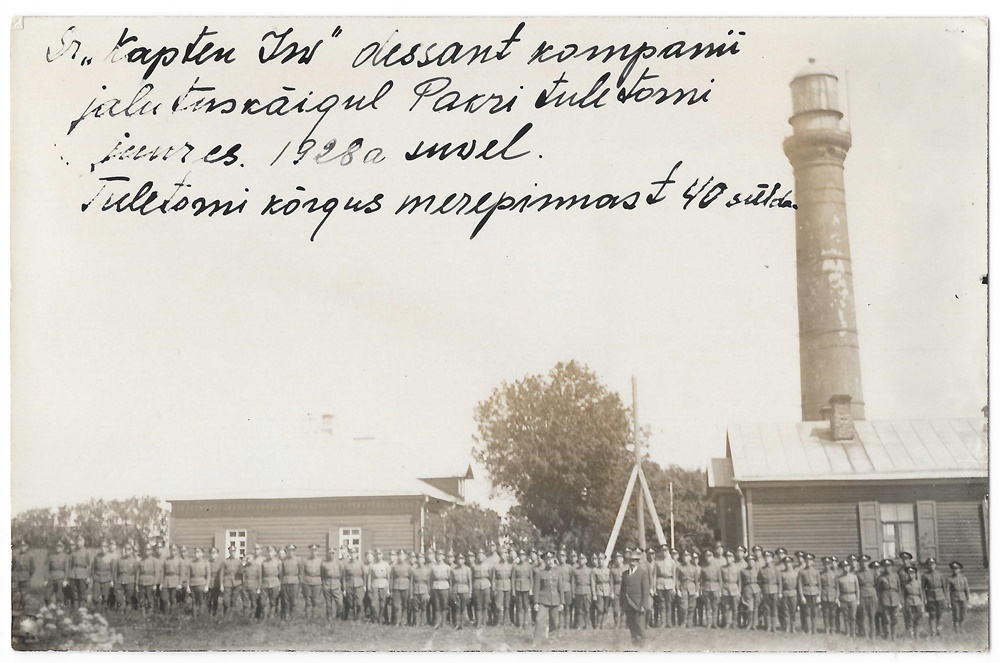 Sr. „Kapten Irv" dessant kompanii
jalutuskäigul Pakri tuletorni
juures. 1928a suvel.
Tuletorni kõrgus merepinnast 40 sülda.